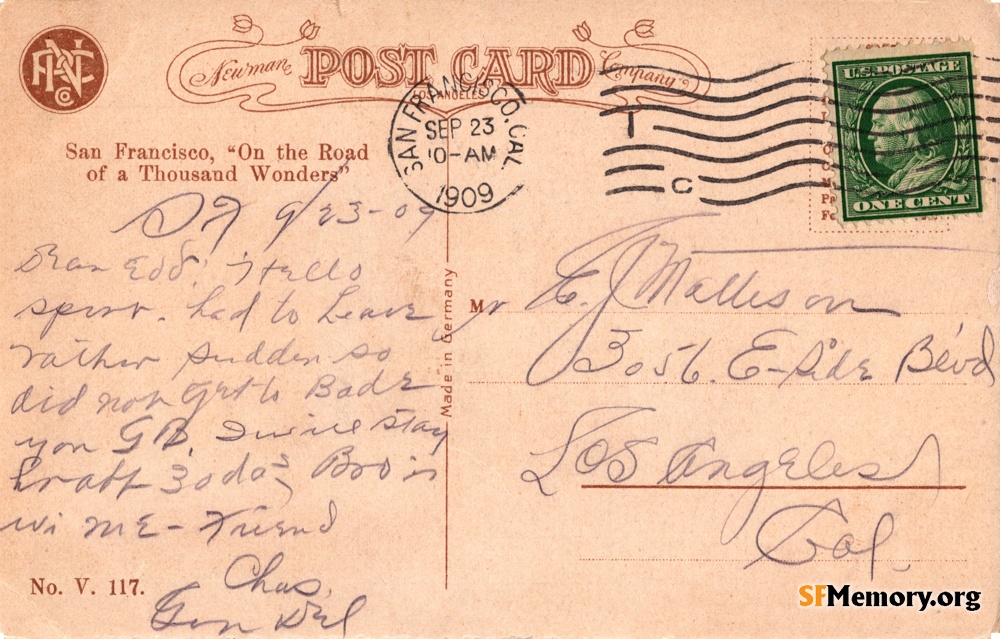 Newman POST CARD Company
LOS ANGELES
SAN FRANCISCO. CAL
SEP 23
10-AM
1909
C
U.S. POSTAGE
ONE CENT
San Francisco, "On the Road
of a Thousand Wonders"
SF 9/23-09
Dear Edd. Hello
sport. had to leave
rather sudden so
did not get to Bade
you GB. I will stay
here abt 30 da's Bro is
wi me - Friend
Chas.
Gen Del
No. V. 117.
Made in Germany
Mr E. J. Mattison
3056. E-Side Blvd
Los Angeles
Cal.
SFMemory.org